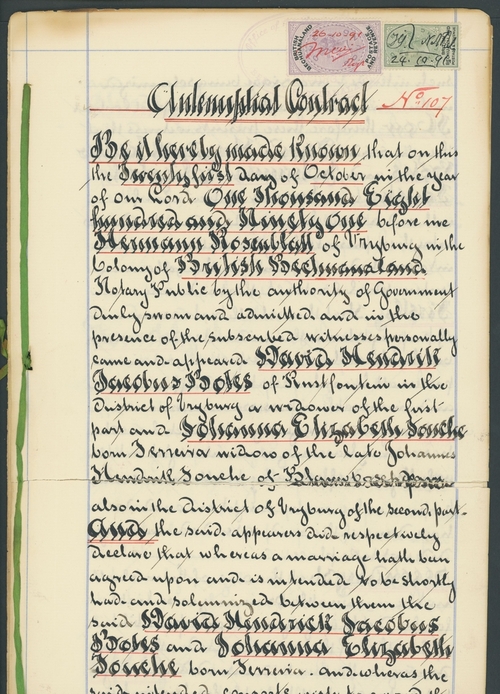 BRITISH BECHUANALAND
POSTAGE AND REVENUE
26-10-91
24.10.91
Antenuptial Contract No 107
Be it hereby made Known that on this
the Twentyfirst day of October in the year
of our Lord One Thousand Eight
hundred and Ninety One before me
Hermann Rosenblatt of Vryburg in the
Colony of British Bechuanaland
Notary Public by the authority of Government
duly sworn and admitted and in the
presence of the subscribed witnesses personally
came and appeared David Hendrik
Jacobus Botes of Rustfontein in the
District of Vryburg a widower of the first
part and Johanna Elizabeth Fouche
born Ferreira widow of the late Johannes
Hendrik Fouche of
also in the District of Vryburg of the second part-
And the said appearers did respectively
declare that whereas a marriage hath been
agreed upon and is intended to be shortly
had and solemnized between them the
said David Hendrick Jacobus
Botes and Johanna Elizabeth
Fouche born Ferreira. and whereas the